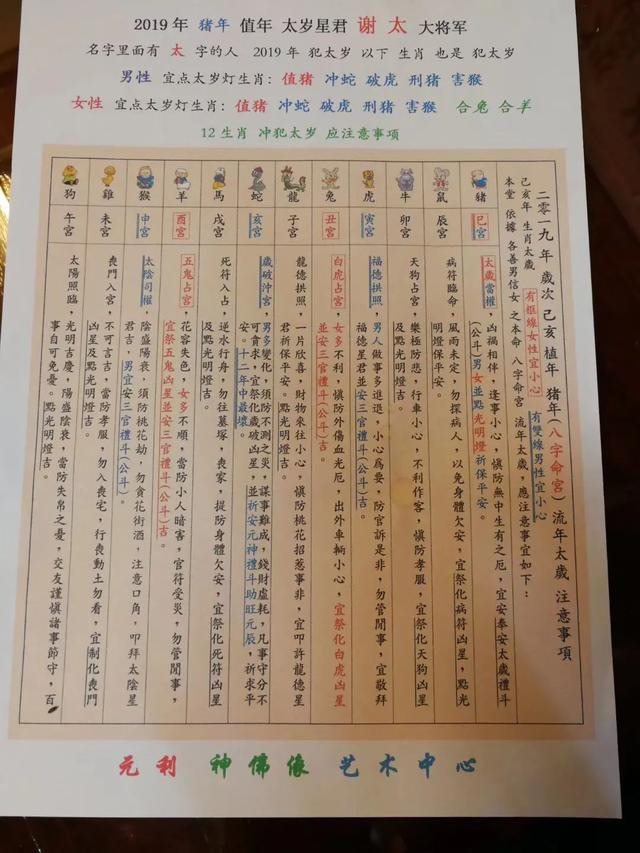 2019年 猪年 值年 太岁星君 谢 太 大将军
名字里面有 太 字的人 2019年 犯太岁 以下 生肖 也是 犯太岁
男性 宜点太岁灯生肖：值猪 冲蛇 破虎 刑猪 害猴
女性 宜点太岁灯生肖：值猪 冲蛇 破虎 刑猪 害猴 合兔 合羊
12生肖 冲犯太岁 应注意事项
二零一九年 歲次 己亥 植年 豬年(八字命宮) 流年太歲 注意事項
己亥年 生肖太歲 有框線女性宜小心 有雙線男性宜小心
本堂 依據 各善男信女 之本命 八字命宮 流年太歲，應注意事宜如下：
豬
巳宮
太歲當權，凶禍相伴，逢事小心，慎防無中生有之厄，宜安奉安太歲禮斗
(公斗)男女並點光明燈祈保平安。
鼠
辰宮
病符臨命，風雨未定，勿探病人，以免身體欠安，宜祭化病符凶星，點光
明燈保平安。
牛
卯宮
天狗占宮，樂極防悲，行車小心，不利作客，慎防孝服，宜祭化天狗凶星
及點光明燈吉。
虎
寅宮
福德拱照，男人做事多進退，小心為要，防官訴是非，勿管閒事，宜敬拜
福德星君並安三官禮斗(公斗)吉。
兔
丑宮
白虎占宮，女多不利，慎防外傷血光厄，出外車輛小心，宜祭化白虎凶星
並安三官禮斗(公斗)吉。
龍
子宮
龍德拱照，一片欣喜，財物來往小心，慎防桃花招惹事非，宜叩許龍德星
君祈保平安及點光明燈吉。
蛇
亥宮
歲破沖宮，男多變化，須防不測之災，謀事難成，錢財虛耗，凡事守分不
可貪求，宜祭化歲破凶星，並祈安元神禮斗助旺元辰，祈求平
安。十二年中最壞。
馬
戌宮
死符入占，逆水行舟，勿往墓塚，喪家，提防身體欠安，宜祭化死符凶星
及點光明燈吉。
羊
酉宮
五鬼占宮，花容失色，女多不順，當防小人暗害，官符受災，勿管閒事，
宜祭五鬼凶星並安三官禮斗(公斗)吉。
猴
申宮
太陰司權，陰盛陽衰，須防桃花劫，勿貪花街酒，注意口角，叩拜太陰星
君吉，男宜安三官禮斗(公斗)。
雞
未宮
喪門入宮，不可言吉，當防孝服，勿入喪宅，行喪動土勿看，宜制化喪門
凶星及點光明燈吉。
狗
午宮
太陽照臨，光明吉慶，陽盛陰衰，當防失帛之憂，交友謹慎諸事節守，百
事自可免憂。點光明燈吉。
元利 神佛像 艺术中心